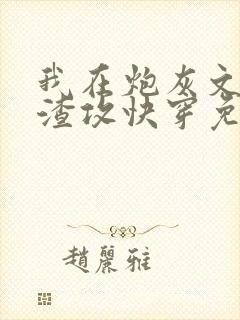 我在炮灰文
渣攻快穿免
趙麗雅